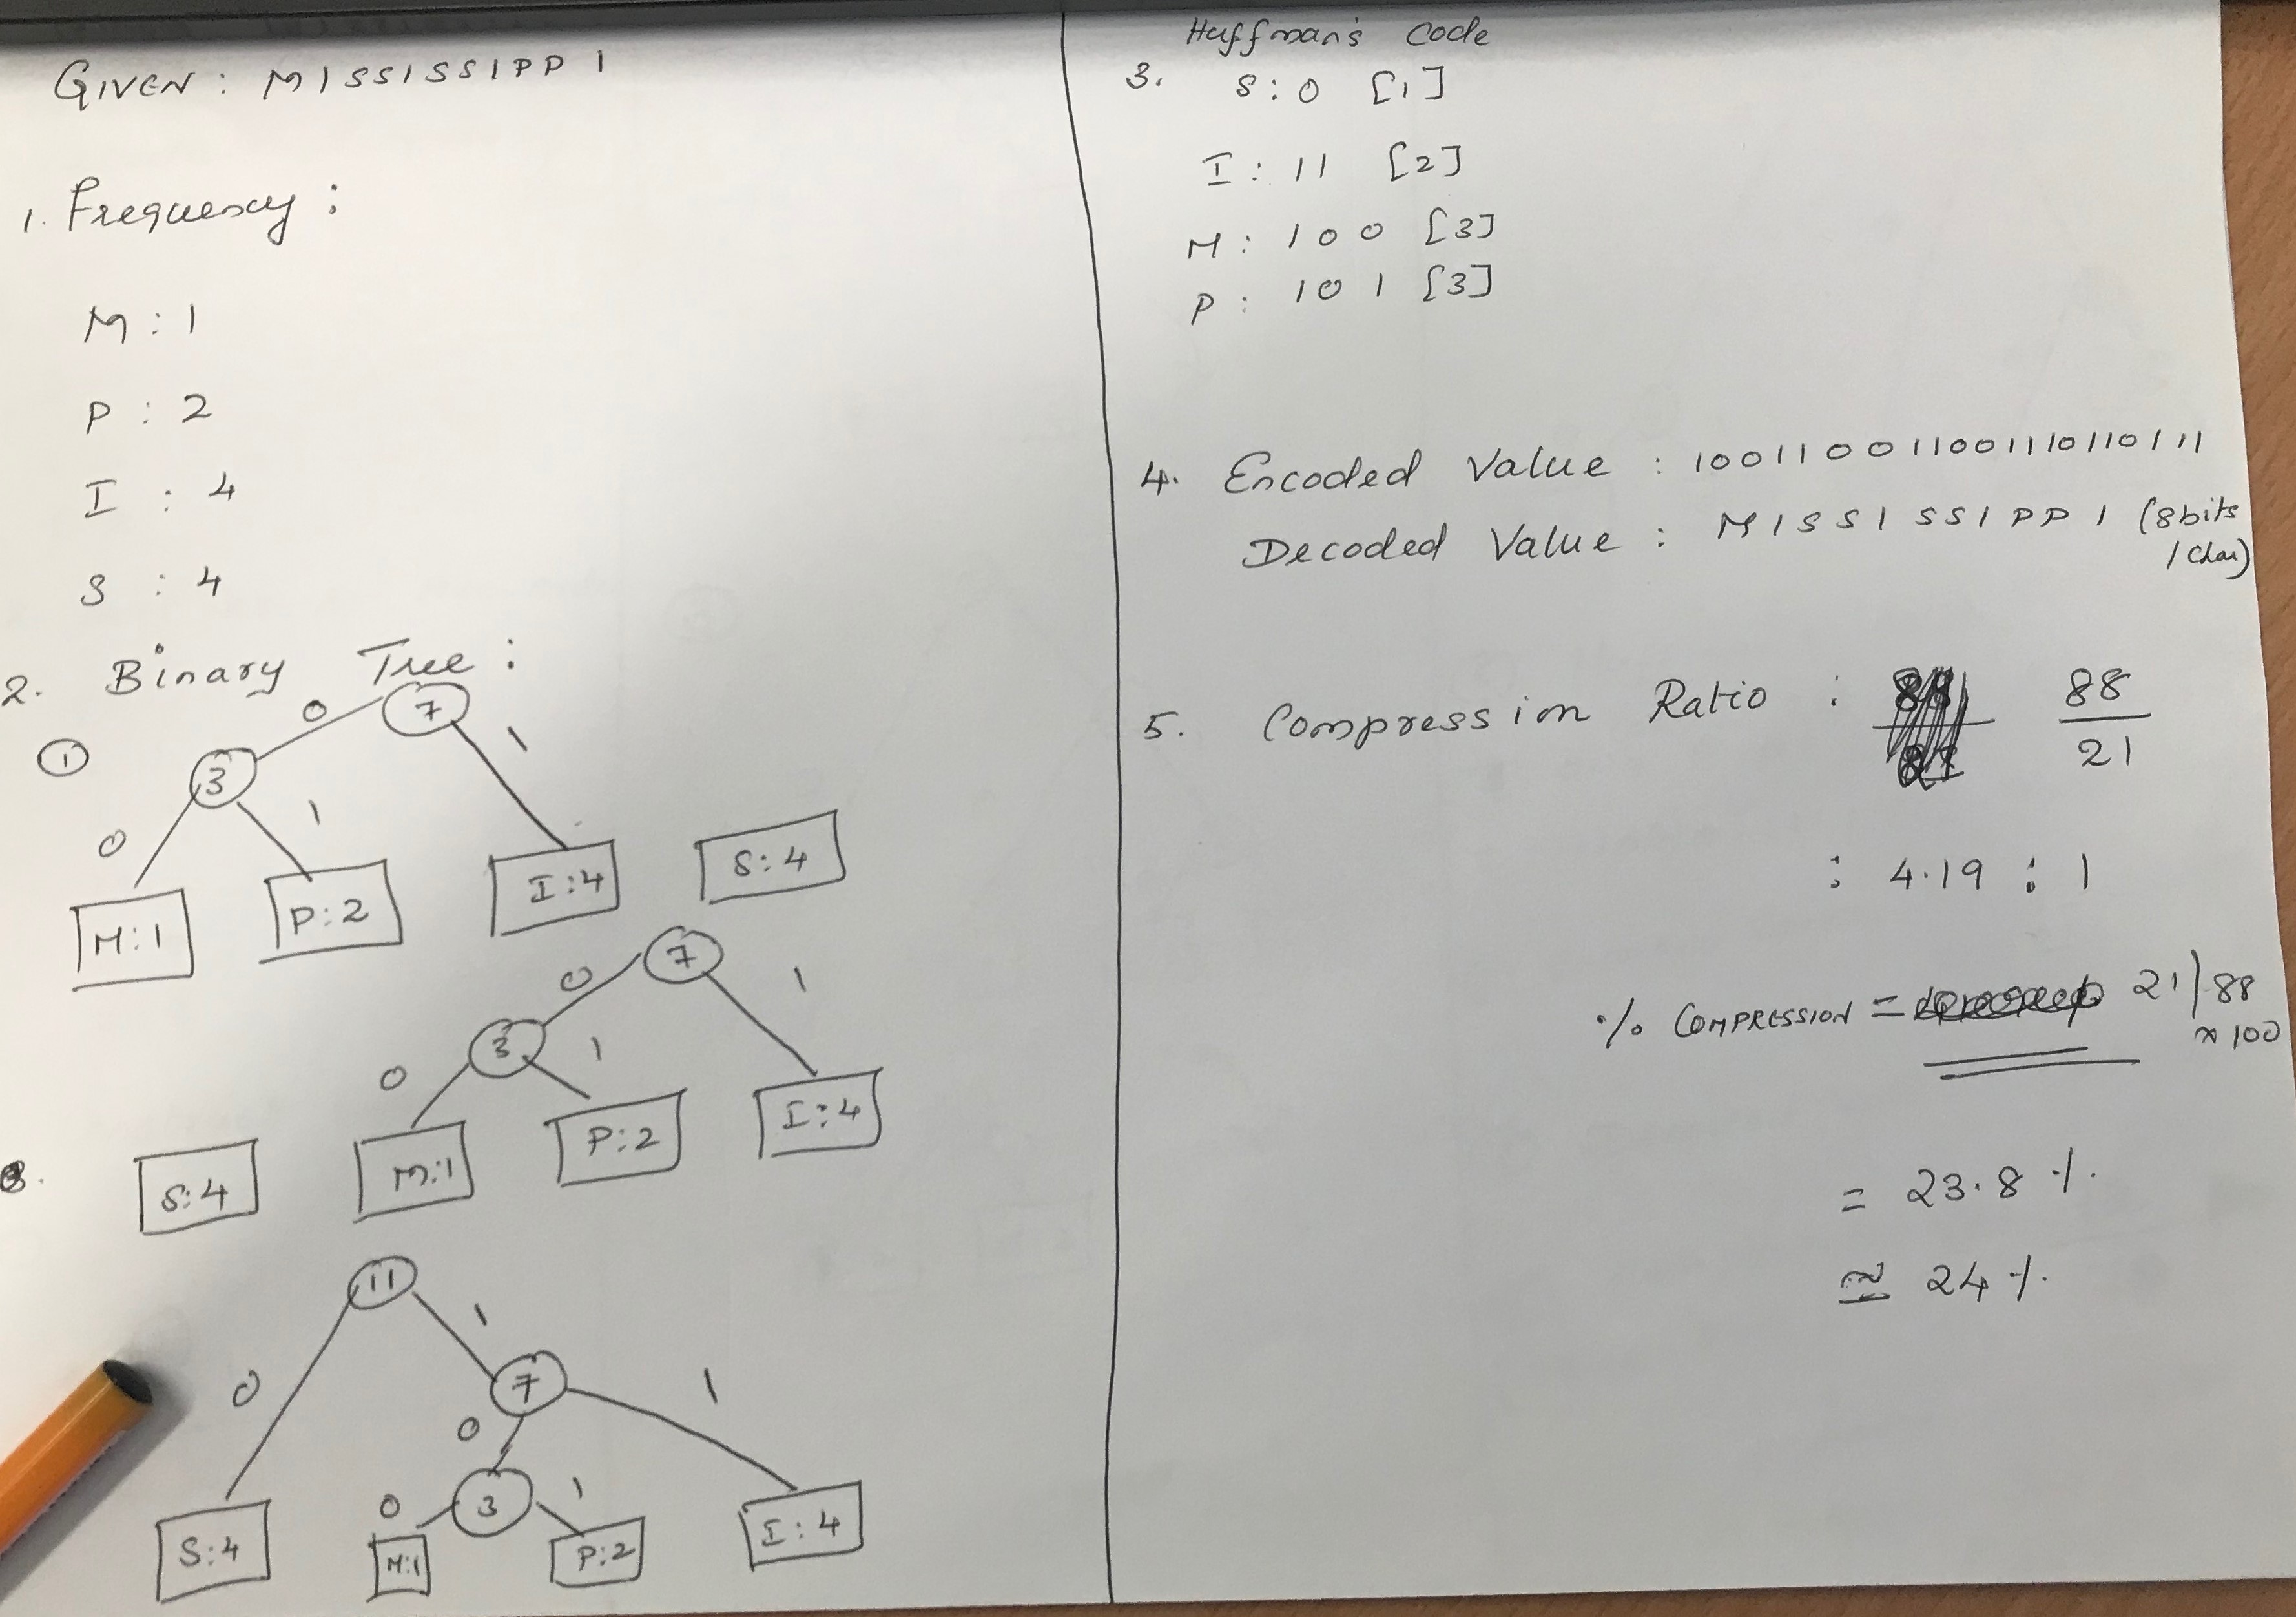 GIVEN : MISSISSIPPI
1. Frequency :
M : 1
P : 2
I : 4
S : 4
2. Binary Tree :
1
7
0 1
3
0 1
M:1 P:2 I:4 S:4
7
0 1
3
0 1
S:4 M:1 P:2 I:4
11
0 1
7
0 1
3
0 1
S:4 M:1 P:2 I:4
Huffman's Code
3. S : 0 [1]
I : 11 [2]
M : 100 [3]
P : 101 [3]
4. Encoded Value : 100110011001110110111
Decoded Value : MISSISSIPPI (8bits
/char)
5. Compression Ratio : 88
21
: 4.19 : 1
% COMPRESSION = 21/88
x 100
= 23.8 %.
≅ 24 %.